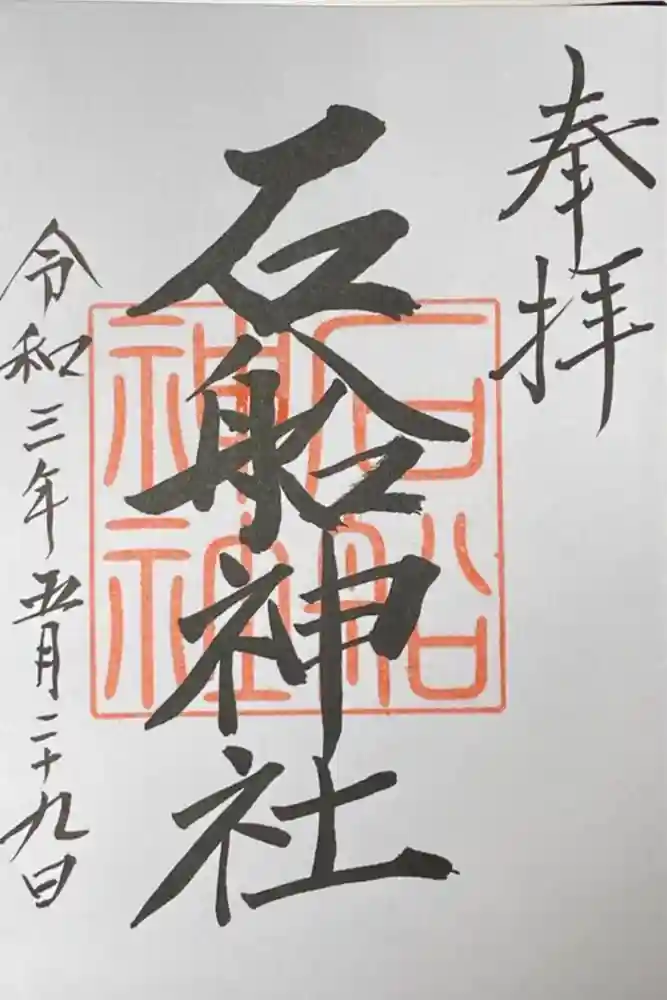 奉拝
石船神社
石船神社
令和三年五月二十九日